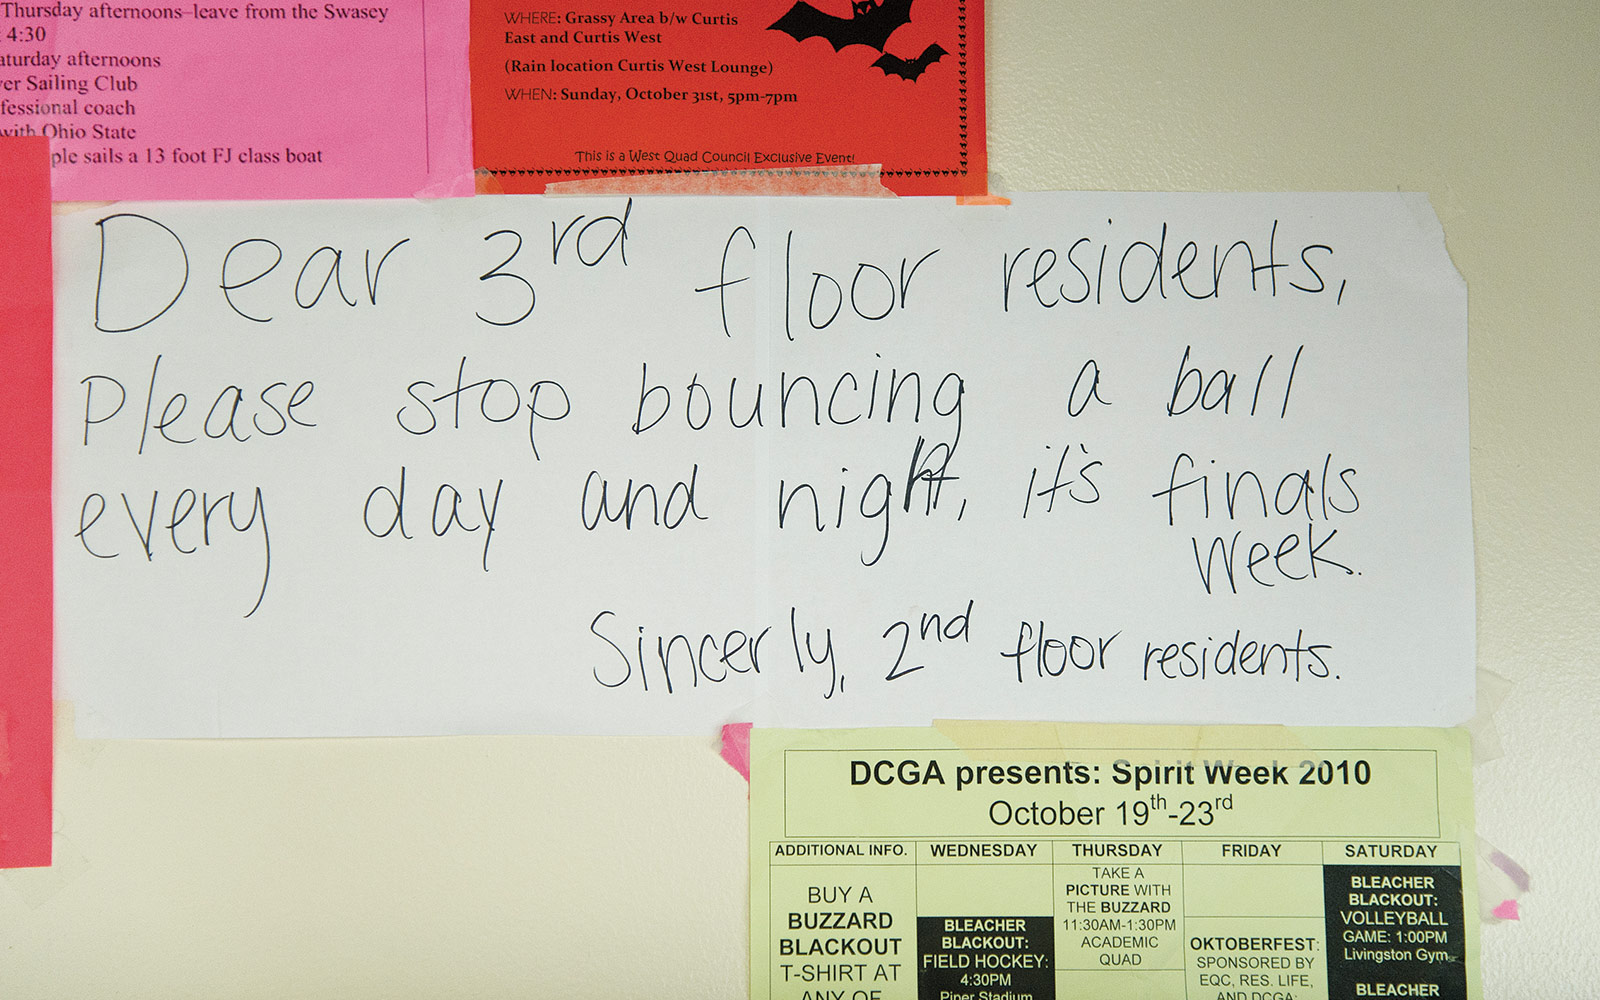 Thursday afternoons–leave from the Swasey
4:30
aturday afternoons
er Sailing Club
fessional coach
with Ohio State
ple sails a 13 foot FJ class boat
WHERE: Grassy Area b/w Curtis
East and Curtis West
(Rain location Curtis West Lounge)
WHEN: Sunday, October 31st, 5pm-7pm
This is a West Quad Council Exclusive Event!
Dear 3rd floor residents,
Please stop bouncing a ball
every day and night, it's finals
week.
Sincerly, 2nd floor residents.
DCGA presents: Spirit Week 2010
October 19th-23rd
ADDITIONAL INFO.
BUY A
BUZZARD
BLACKOUT
T-SHIRT AT
ANY OF
WEDNESDAY
BLEACHER
BLACKOUT:
FIELD HOCKEY:
4:30PM
Piper Stadium
THURSDAY
TAKE A
PICTURE WITH
THE BUZZARD
11:30AM-1:30PM
ACADEMIC
QUAD
FRIDAY
OKTOBERFEST:
SPONSORED BY
EQC, RES. LIFE,
AND DCGA:
SATURDAY
BLEACHER
BLACKOUT:
VOLLEYBALL
GAME: 1:00PM
Livingston Gym
BLEACHER